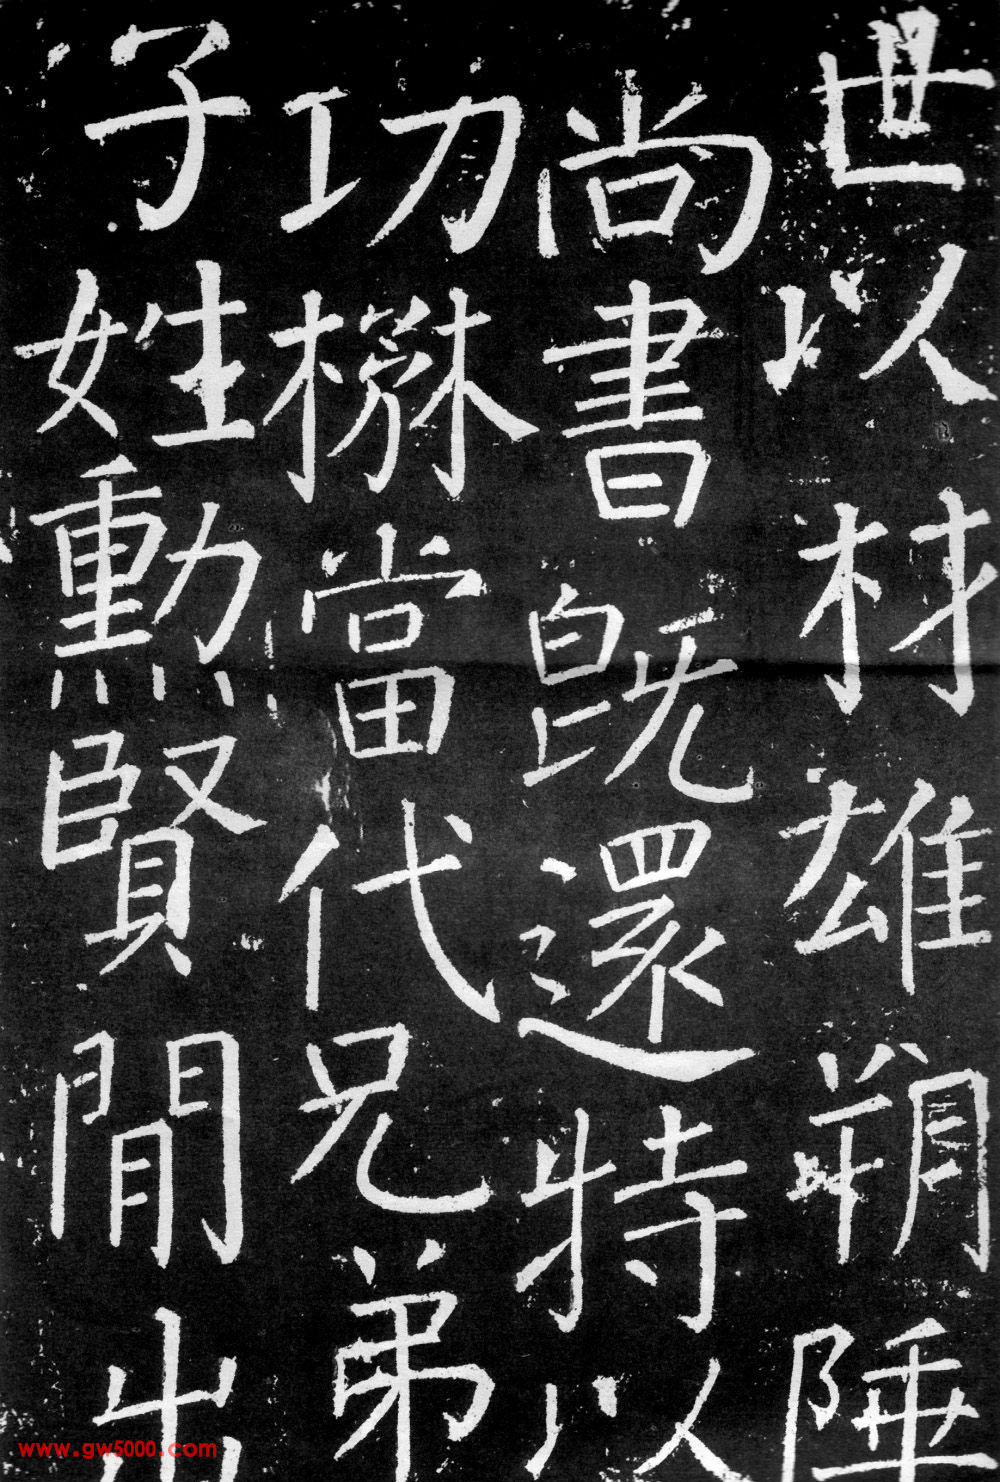 世以材雄朔陲
尚書既還特以
功楙當代兄弟
子姓勲賢閒出
www.gw5000.com